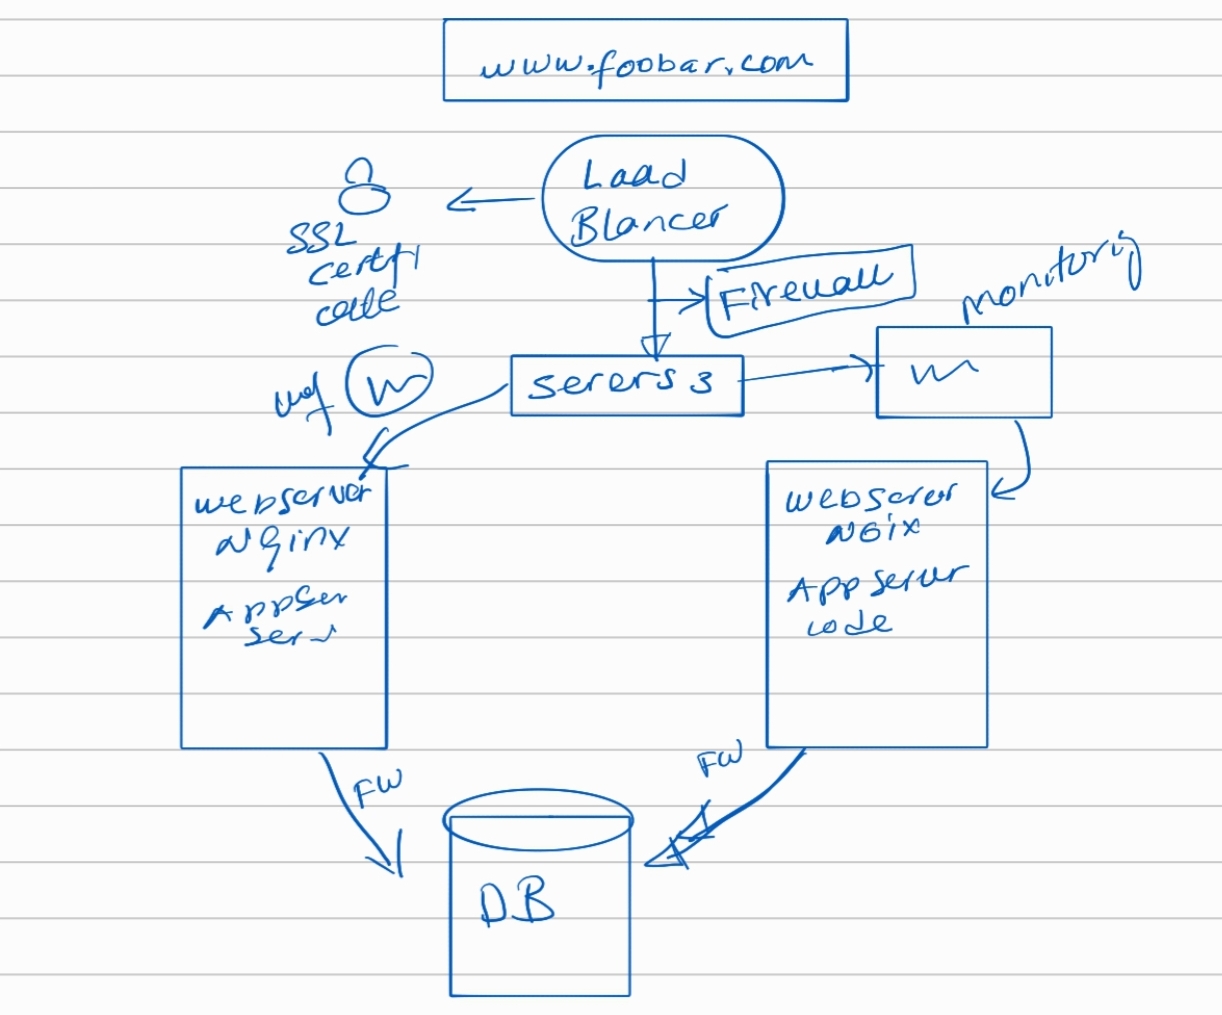 www.foobar.com
Laad
Blancer
SSL
certfi
cate
Firewall
monitorig
m
serers 3
m
webserver
Nginx
Appser
ser
webserer
NGix
App server
code
FW
FW
DB